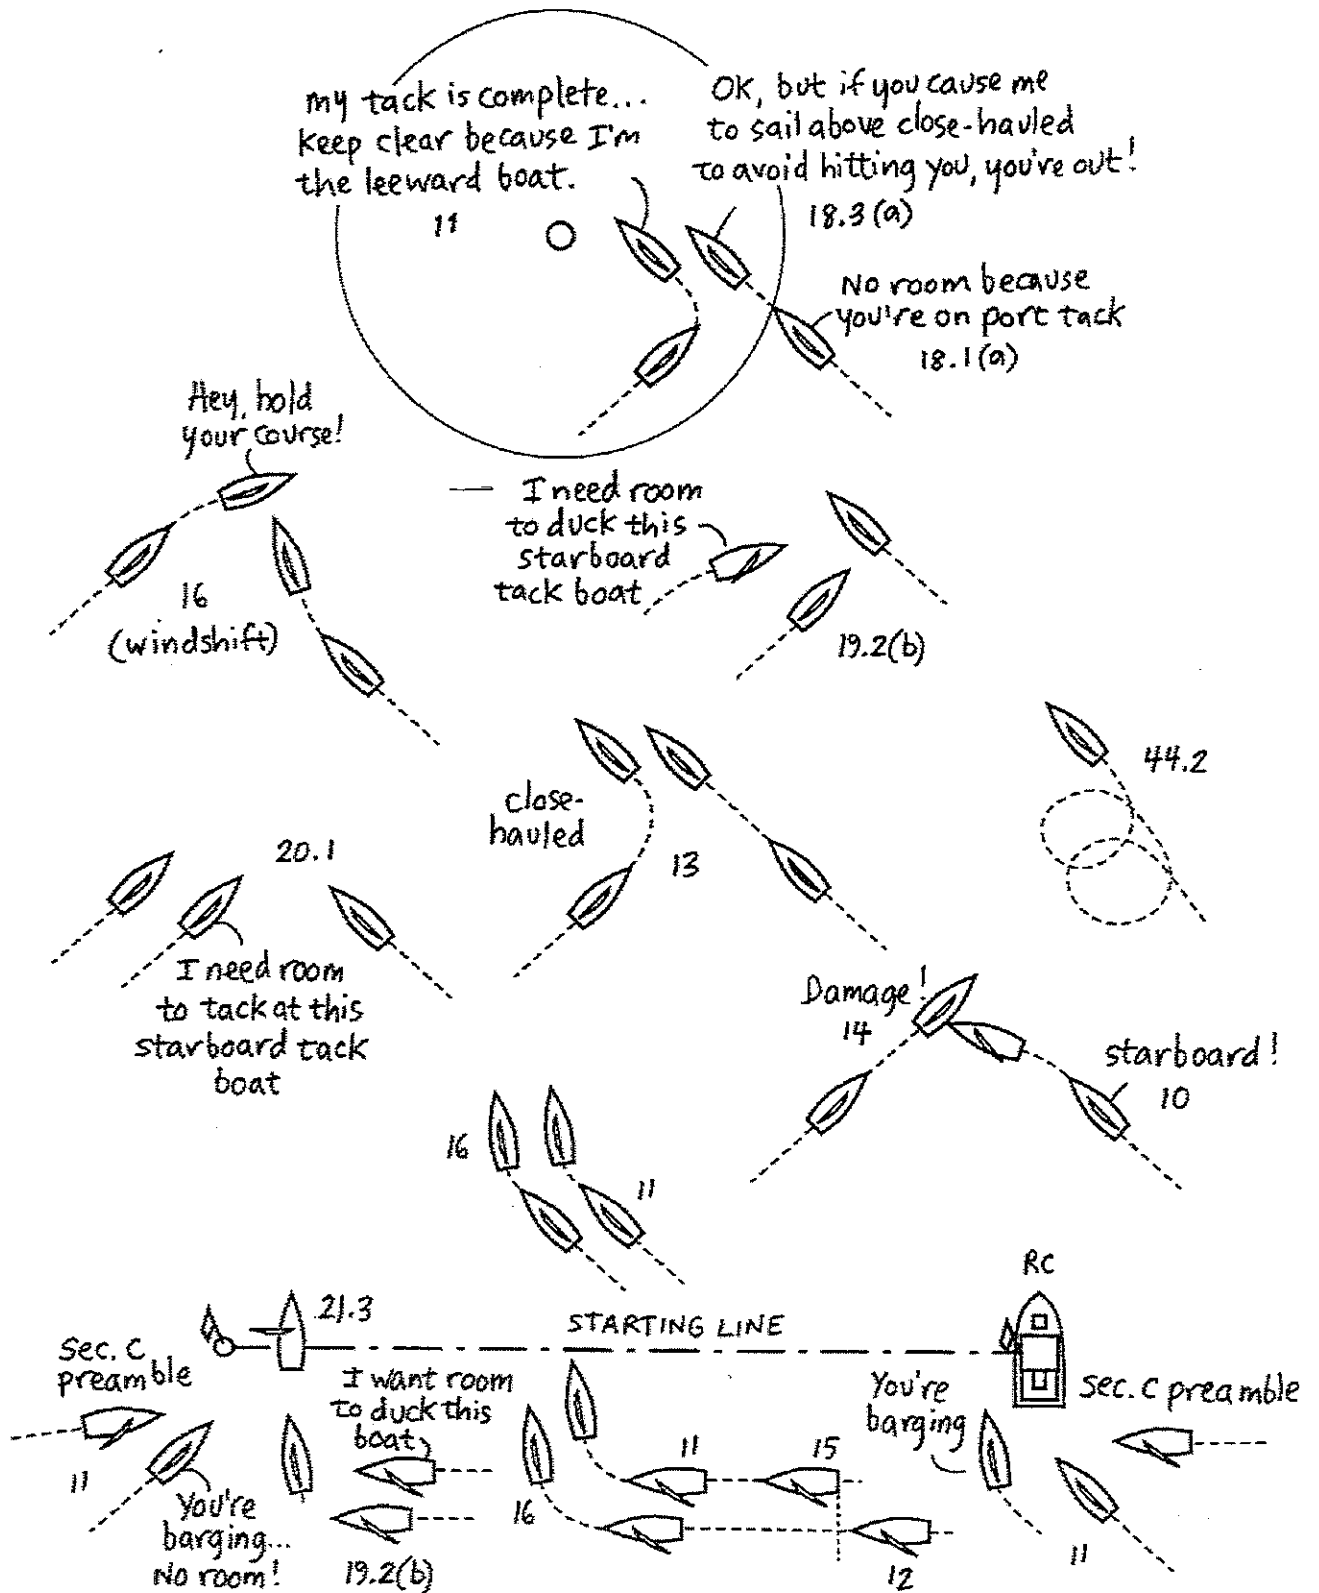 my tack is complete...
keep clear because I'm
the leeward boat.
11
OK, but if you cause me
to sail above close-hauled
to avoid hitting you, you're out!
18.3(a)
No room because
you're on port tack
18.1(a)
Hey, hold
your course!
16
(windshift)
I need room
to duck this
starboard
tack boat
19.2(b)
close-
hauled
13
44.2
20.1
I need room
to tack at this
starboard tack
boat
Damage!
14
starboard!
10
16
11
RC
21.3
STARTING LINE
Sec. C
preamble
11
You're
barging...
No room!
I want room
to duck this
boat
19.2(b)
16
11
15
12
You're
barging
Sec. C preamble
11